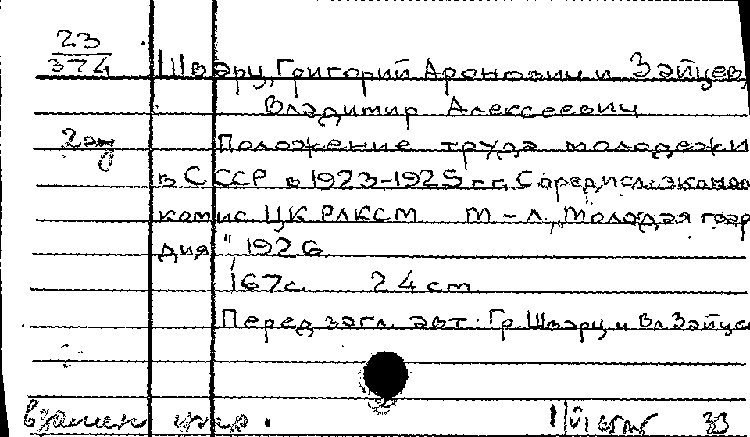 23
374
Шварц, Григорий Аронович и Зайцев,
Владимир Алексеевич
2 экз
Положение труда молодежи
в СССР в 1923-1925 гг. С предисл. эконом
комис. ЦК РЛКСМ М-Л, „Молодая гвар
дия", 1926
167с. 24 cm
Перед загл. авт: Гр. Шварц и Вл. Зайце
взамен